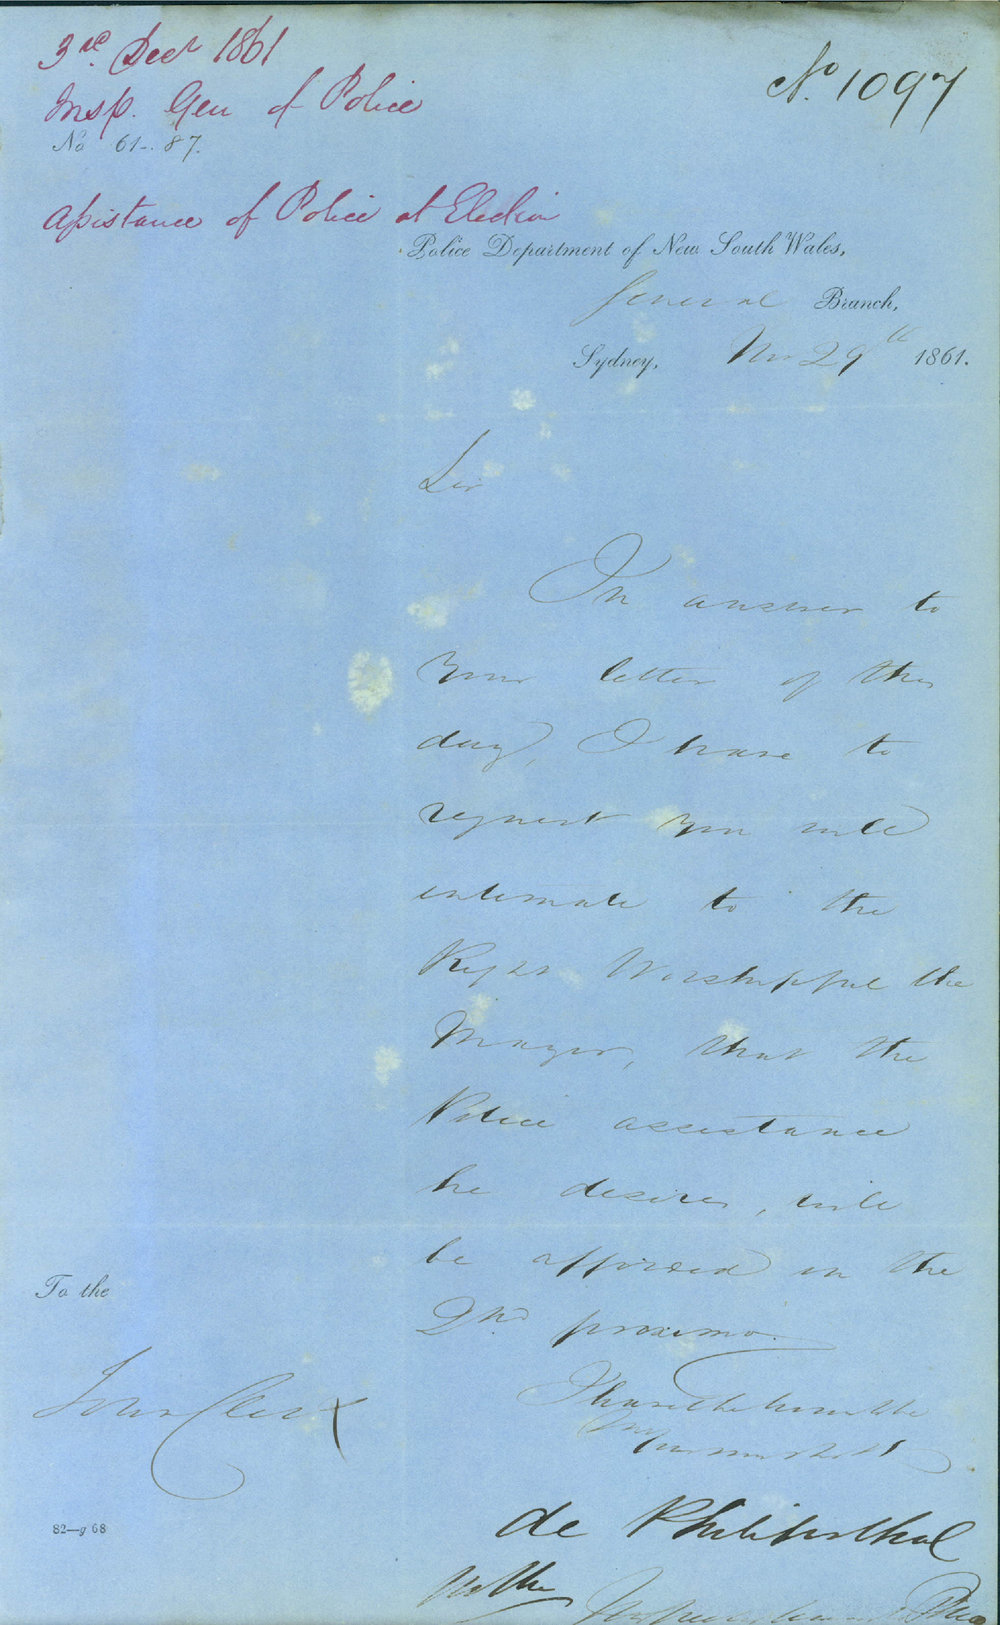 3rd Decr 1861
No. 1097
Insp. Gen of Police
No 61-. 87.
Assistance of Police at Election
Police Department of New South Wales,
General Branch,
Sydney, Nov 29th 1861.
Sir
In answer to
your letter of this
day, I have to
request you will
intimate to the
Right Worshipful the
Mayor, that the
Police assistance
he desires, will
be afforded on the
2nd proximo.
To the
Town Clerk
I have the honor to be
Sir
Your most obt
82—g 68
de Philipsthal
for the